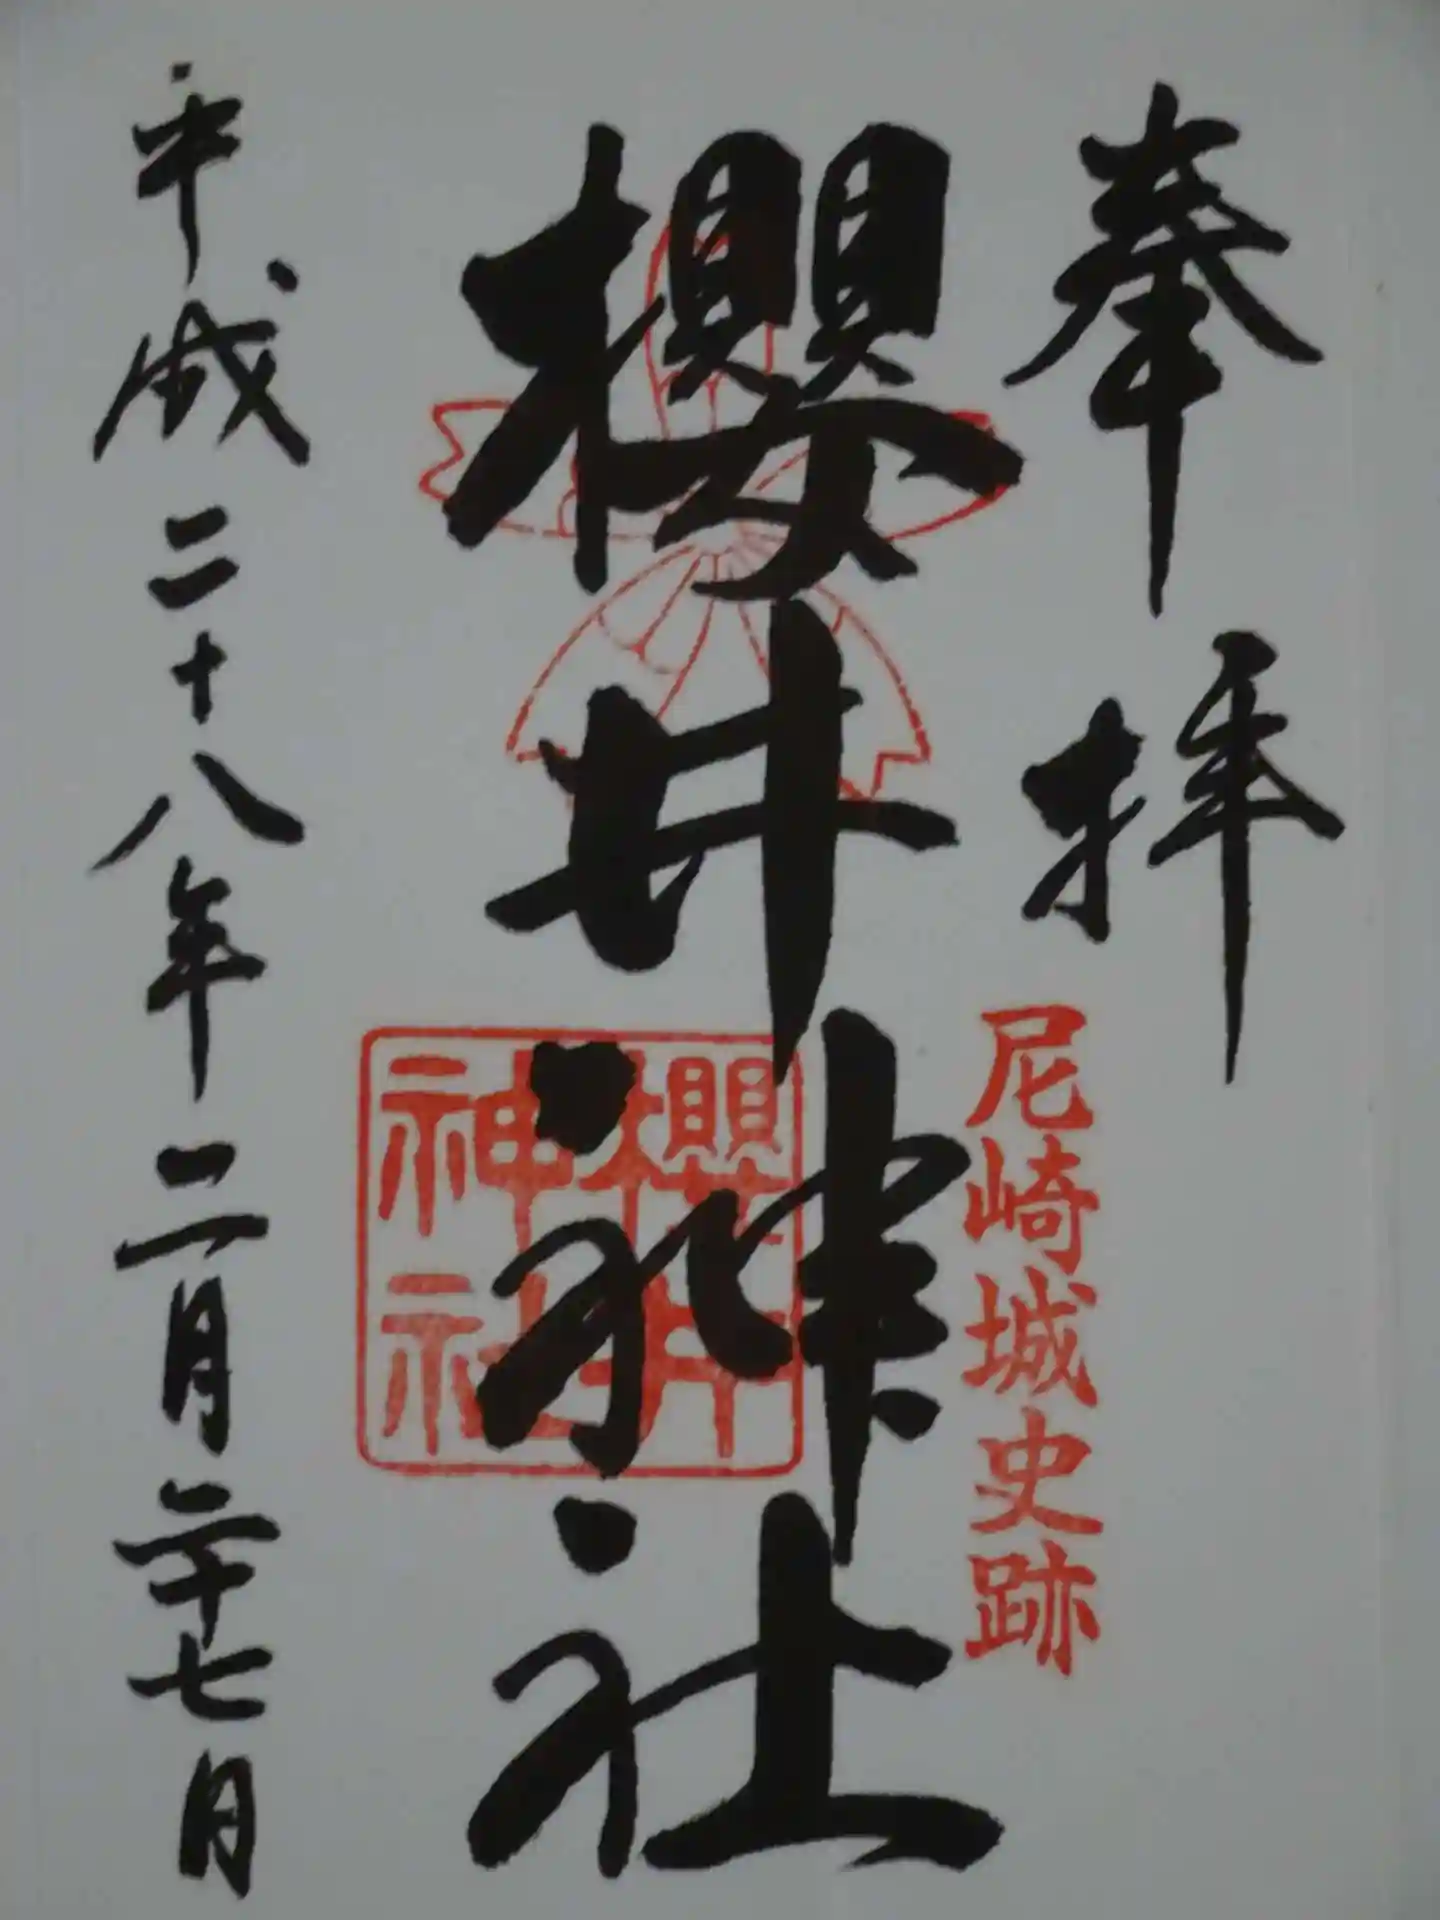 奉拝
尼崎城史跡
櫻井神社
櫻井
神社
平成二十八年二月二十七日